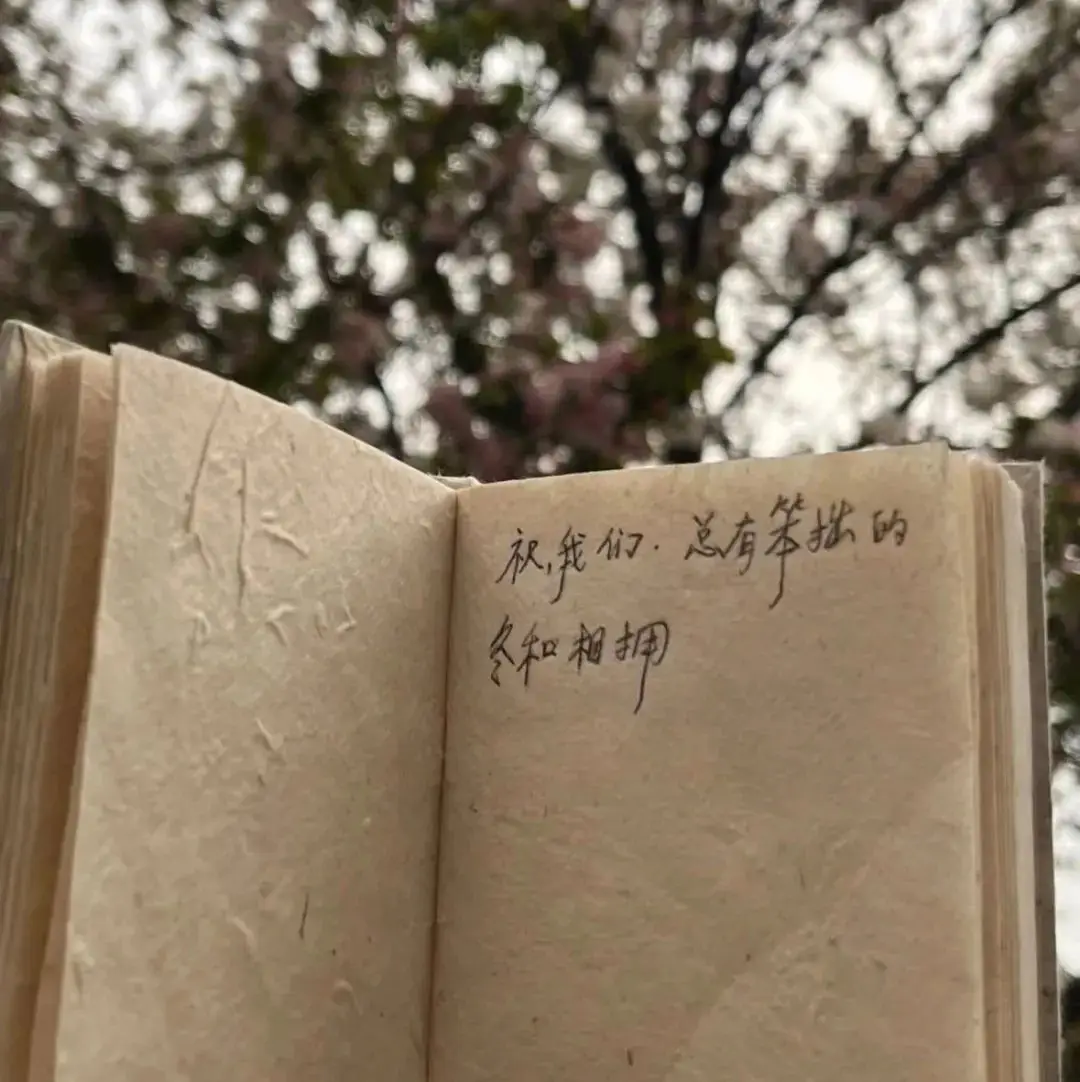 祝,我们.总有笨拙的
冬和相拥